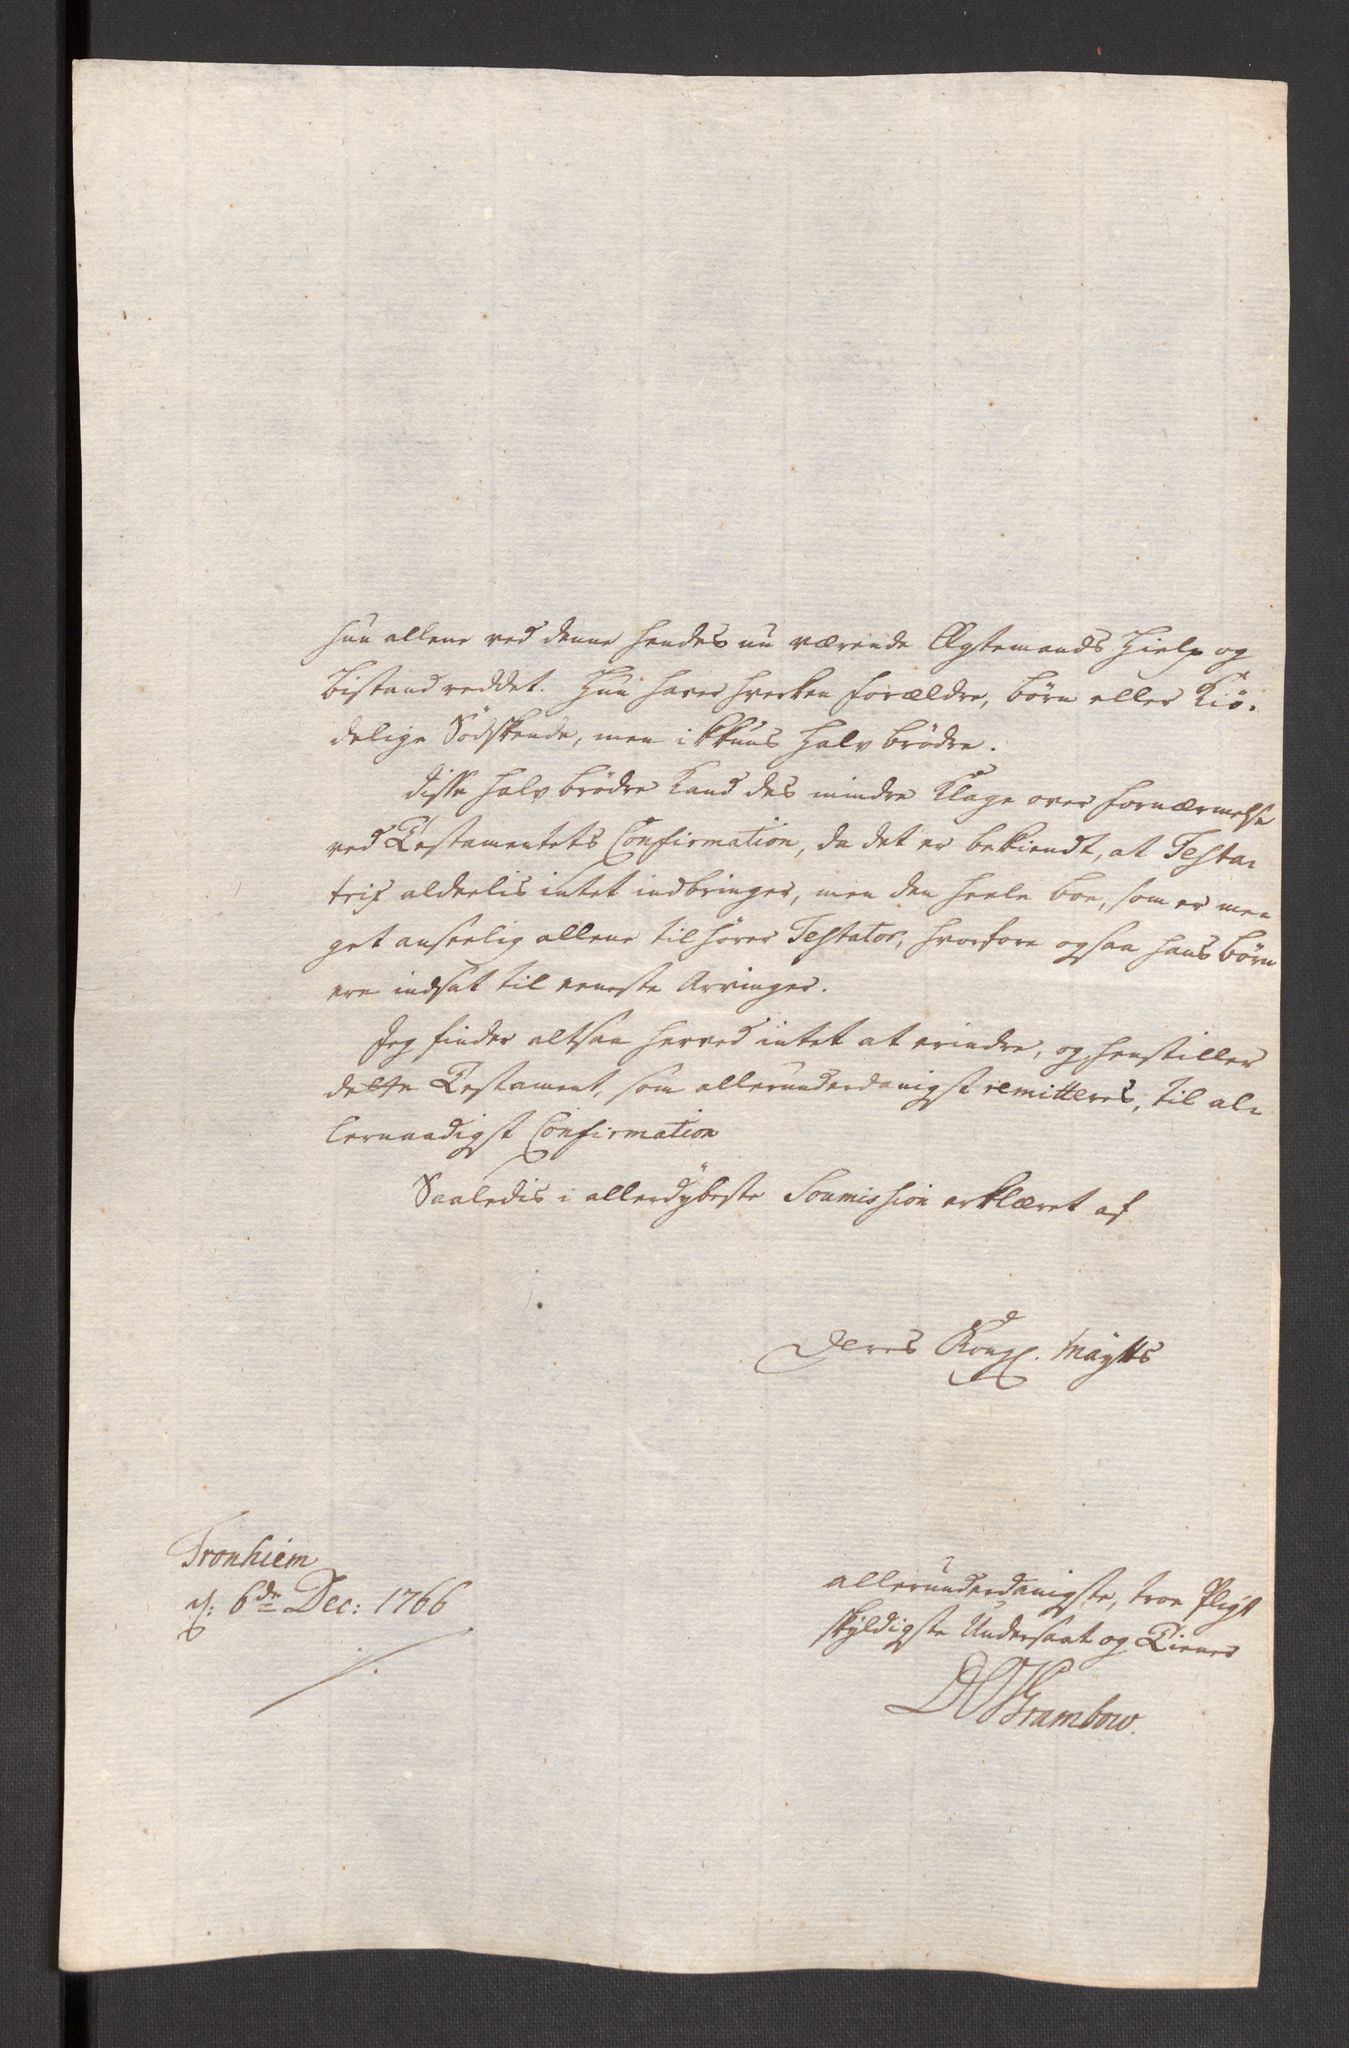 hun allene ved denne hendes nu værende Ægtemands Hielp og
bistand reddet. Hun haver hverken forældre, børn eller Kiø-
delige Södskende, men ikkuns halv brödre.
disse halv brödre kand des mindre klage over fornærmelse
ved Testamentets Confirmation, da det er bekiendt, at Testa-
trix aldeelis intet indbringer, men den heele boe, som er mee
get anseelig allene tilhører Testator, hvorfore ogsaa hans børn
ere indsat til eeneste Arvinger.
Jeg finder altsaa herved intet at erindre, og henstiller
dette Testament, som allerunderdanigst remitteres, til al-
lernaadigst Confirmation
Saaledis i allerdybeste Soumission erklæret af
Deres Kongl. Maytts
Tronhiem
d: 6de Dec: 1766
allerunderdanigste, troe Pligt
skyldigste Undersaat og Tiener
Grambow.